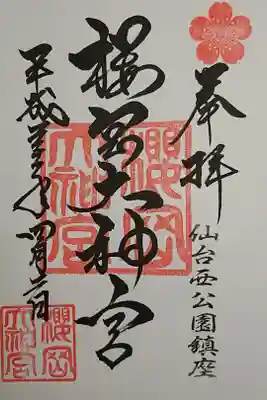 奉拝
仙台西公園鎮座
櫻岡大神宮
櫻岡
大神宮
平成年四月二日
櫻岡
大神宮